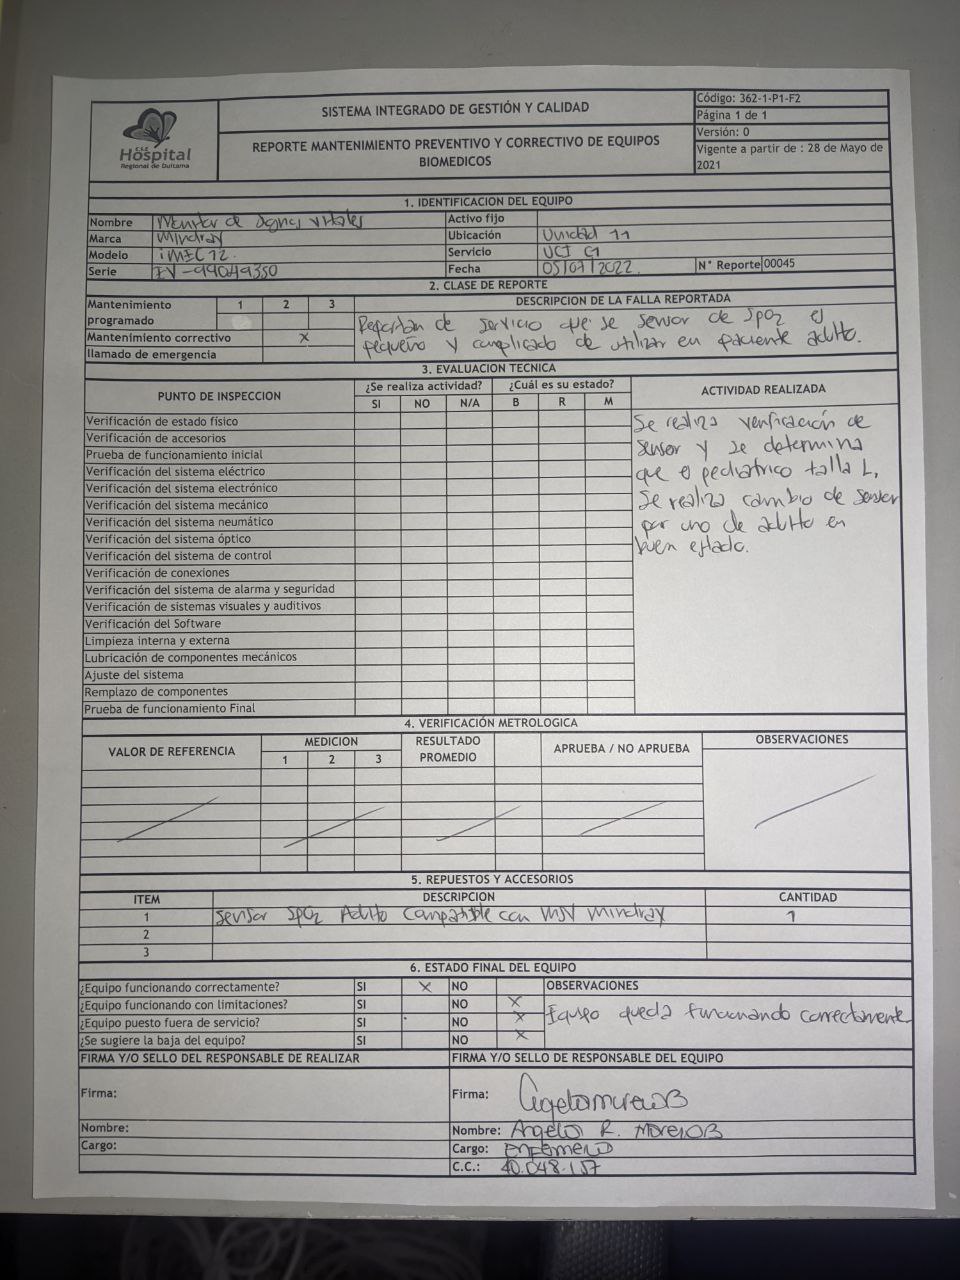 E.S.E.
Hospital
Regional de Duitama
SISTEMA INTEGRADO DE GESTIÓN Y CALIDAD
REPORTE MANTENIMIENTO PREVENTIVO Y CORRECTIVO DE EQUIPOS
BIOMEDICOS
Código: 362-1-P1-F2
Página 1 de 1
Versión: 0
Vigente a partir de : 28 de Mayo de
2021
1. IDENTIFICACION DEL EQUIPO
Nombre Monitor de Signos vitales Activo fijo
Marca Mindray Ubicación Unidad 11
Modelo iMEC12 Servicio UCI
Serie Fecha 05/07/2022 N° Reporte 00045
2. CLASE DE REPORTE
Mantenimiento programado 1 2 3
Mantenimiento correctivo X
llamado de emergencia
DESCRIPCION DE LA FALLA REPORTADA
Reportan de servicio que se sensor de SpO2 el
pequeño y complicado de utilizar en paciente adulto.
3. EVALUACION TECNICA
PUNTO DE INSPECCION ¿Se realiza actividad? ¿Cuál es su estado? ACTIVIDAD REALIZADA
SI NO N/A B R M
Verificación de estado físico
Verificación de accesorios
Prueba de funcionamiento inicial
Verificación del sistema eléctrico
Verificación del sistema electrónico
Verificación del sistema mecánico
Verificación del sistema neumático
Verificación del sistema óptico
Verificación del sistema de control
Verificación de conexiones
Verificación del sistema de alarma y seguridad
Verificación de sistemas visuales y auditivos
Verificación del Software
Limpieza interna y externa
Lubricación de componentes mecánicos
Ajuste del sistema
Remplazo de componentes
Prueba de funcionamiento Final
Se realiza verificación de
sensor y se determina
que el pediatrico talla L,
Se realiza cambio de sensor
por uno de adulto en
buen estado.
4. VERIFICACIÓN METROLOGICA
VALOR DE REFERENCIA MEDICION RESULTADO PROMEDIO APRUEBA / NO APRUEBA OBSERVACIONES
1 2 3
5. REPUESTOS Y ACCESORIOS
ITEM DESCRIPCION CANTIDAD
1 Sensor SpO2 Adulto compatible con MSV mindray 1
2
3
6. ESTADO FINAL DEL EQUIPO
¿Equipo funcionando correctamente? SI X NO OBSERVACIONES
¿Equipo funcionando con limitaciones? SI NO X
¿Equipo puesto fuera de servicio? SI NO X
¿Se sugiere la baja del equipo? SI NO X
Equipo queda funcionando correctamente
FIRMA Y/O SELLO DEL RESPONSABLE DE REALIZAR
Firma:
Nombre:
Cargo:
FIRMA Y/O SELLO DE RESPONSABLE DEL EQUIPO
Firma:
Nombre: R. Moreno B
Cargo: enfermero
C.C.: 40.048.157